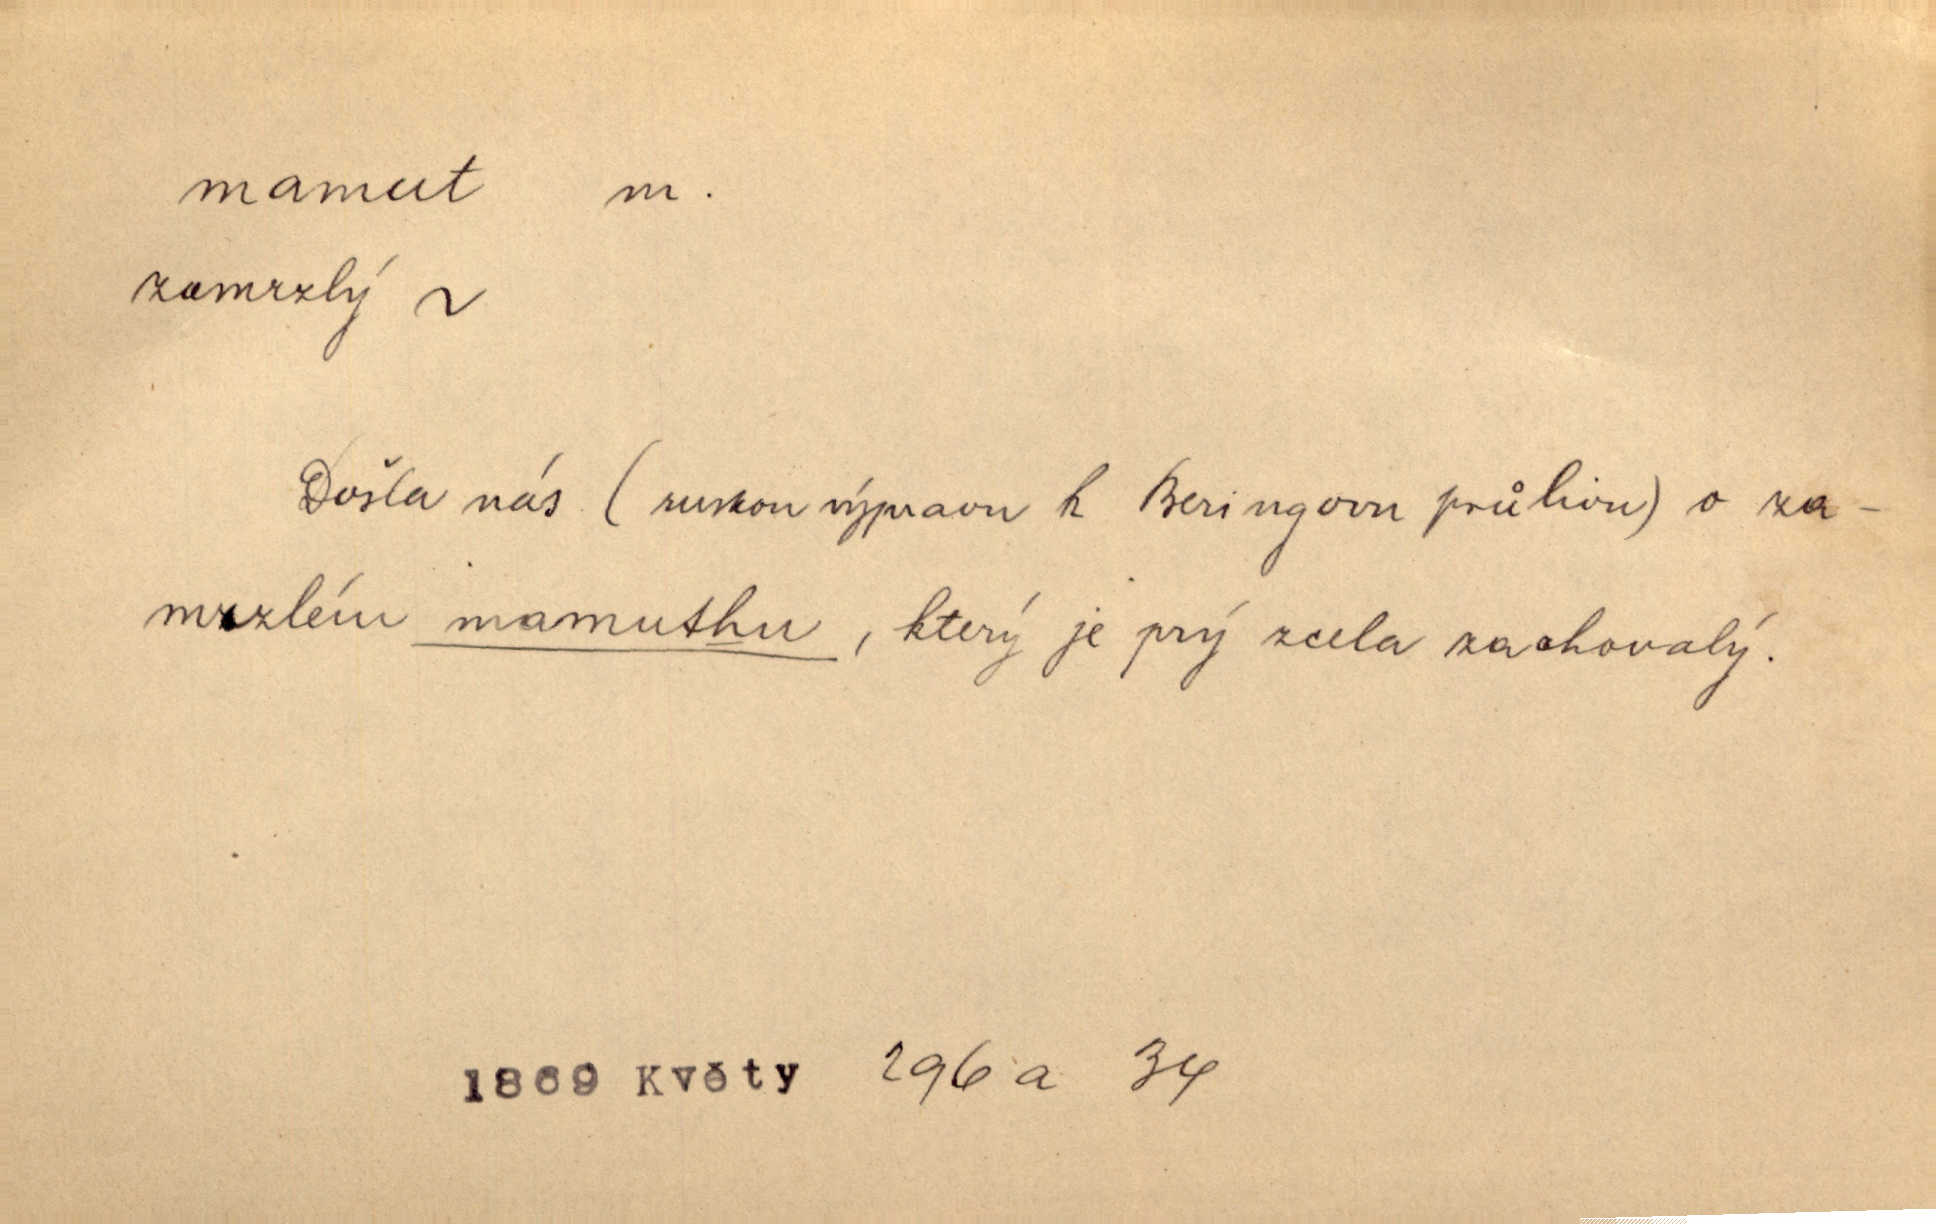 mamut m.
zamrzlý ~
Došla nás (ruskou výpravu k Beringovu průlivu) o za-
mrzlém mamuthu, který je prý zcela zachovalý.
1869 Květy 296 a 34